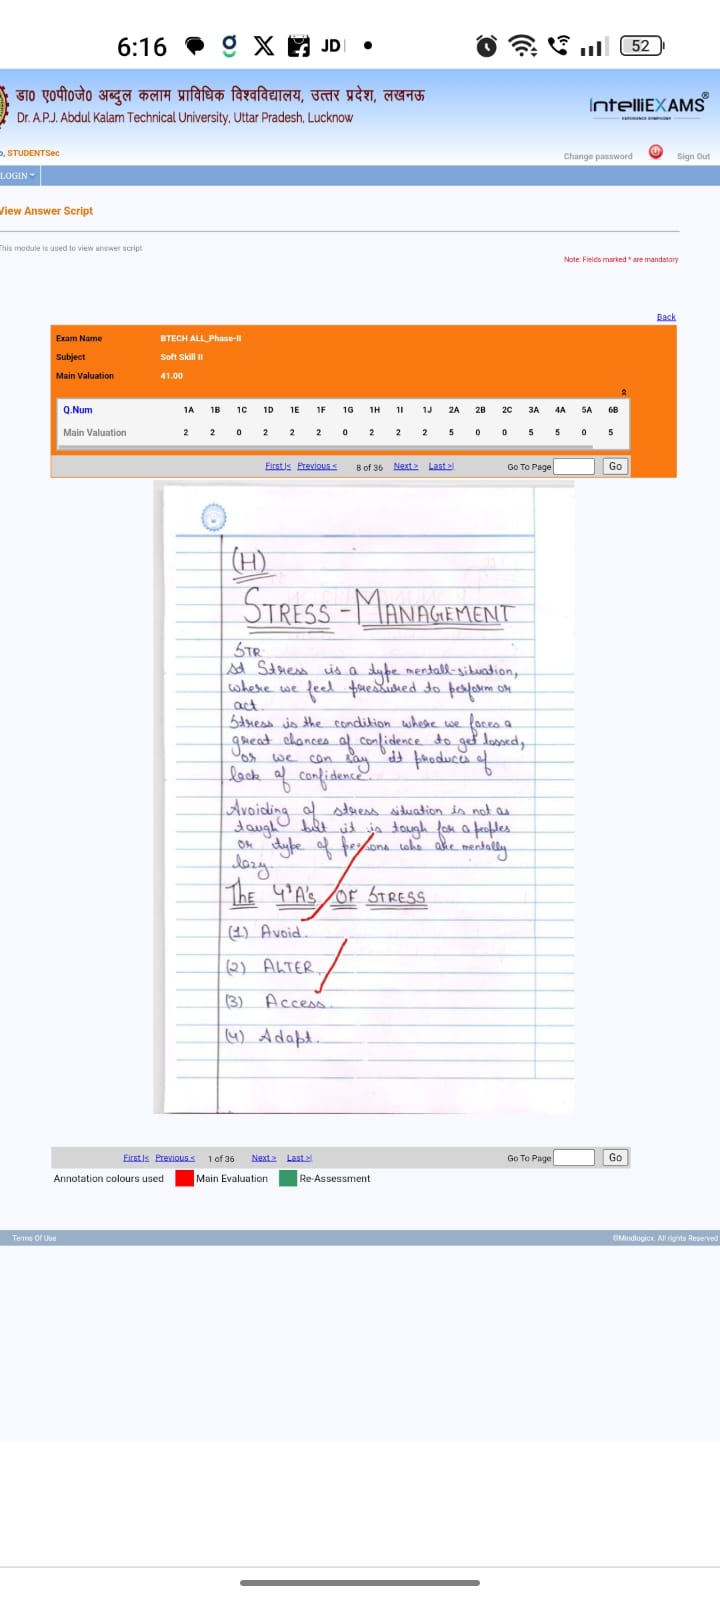 6:16 JD 52
डा0 ए0पी0जे0 अब्दुल कलाम प्राविधिक विश्वविद्यालय, उत्तर प्रदेश, लखनऊ
Dr. A.P.J. Abdul Kalam Technical University, Uttar Pradesh, Lucknow
IntelliEXAMS®
o, STUDENTSec
Change password Sign Out
LOGIN
View Answer Script
This module is used to view answer script
Note: Fields marked * are mandatory
Back
Exam Name BTECH ALL_Phase-II
Subject Soft Skill II
Main Valuation 41.00
Q.Num 1A 1B 1C 1D 1E 1F 1G 1H 1I 1J 2A 2B 2C 3A 4A 5A 6B
Main Valuation 2 2 0 2 2 2 0 2 2 2 5 0 0 5 5 0 5
First|< Previous < 8 of 36 Next > Last >| Go To Page Go
(H)
STRESS - MANAGEMENT
STR
Stress is a type mentall-situation,
where we feel pressured to perform or
act.
Stress is the condition where we faces a
great chances of confidence to get lossed,
or we can say it produces of
lack of confidence.
Avoiding of stress situation is not as
taugh but it is tough for a peoples
or type of persons who are mentally
lazy.
THE 4'A's OF STRESS
(1) Avoid.
(2) ALTER.
(3) Access.
(4) Adapt.
First|< Previous < 1 of 36 Next > Last >| Go To Page Go
Annotation colours used Main Evaluation Re-Assessment
Terms Of Use ©Mindlogicx. All rights Reserved